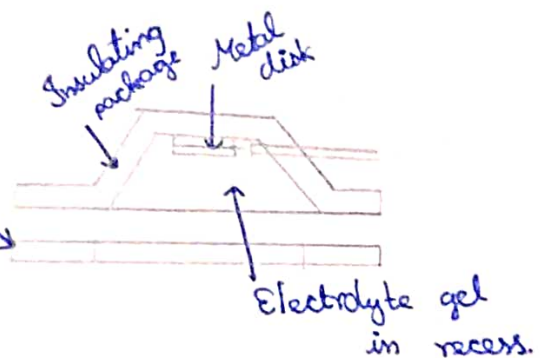 Insulating
package
Metal
disk
Electrolyte gel
in recess.